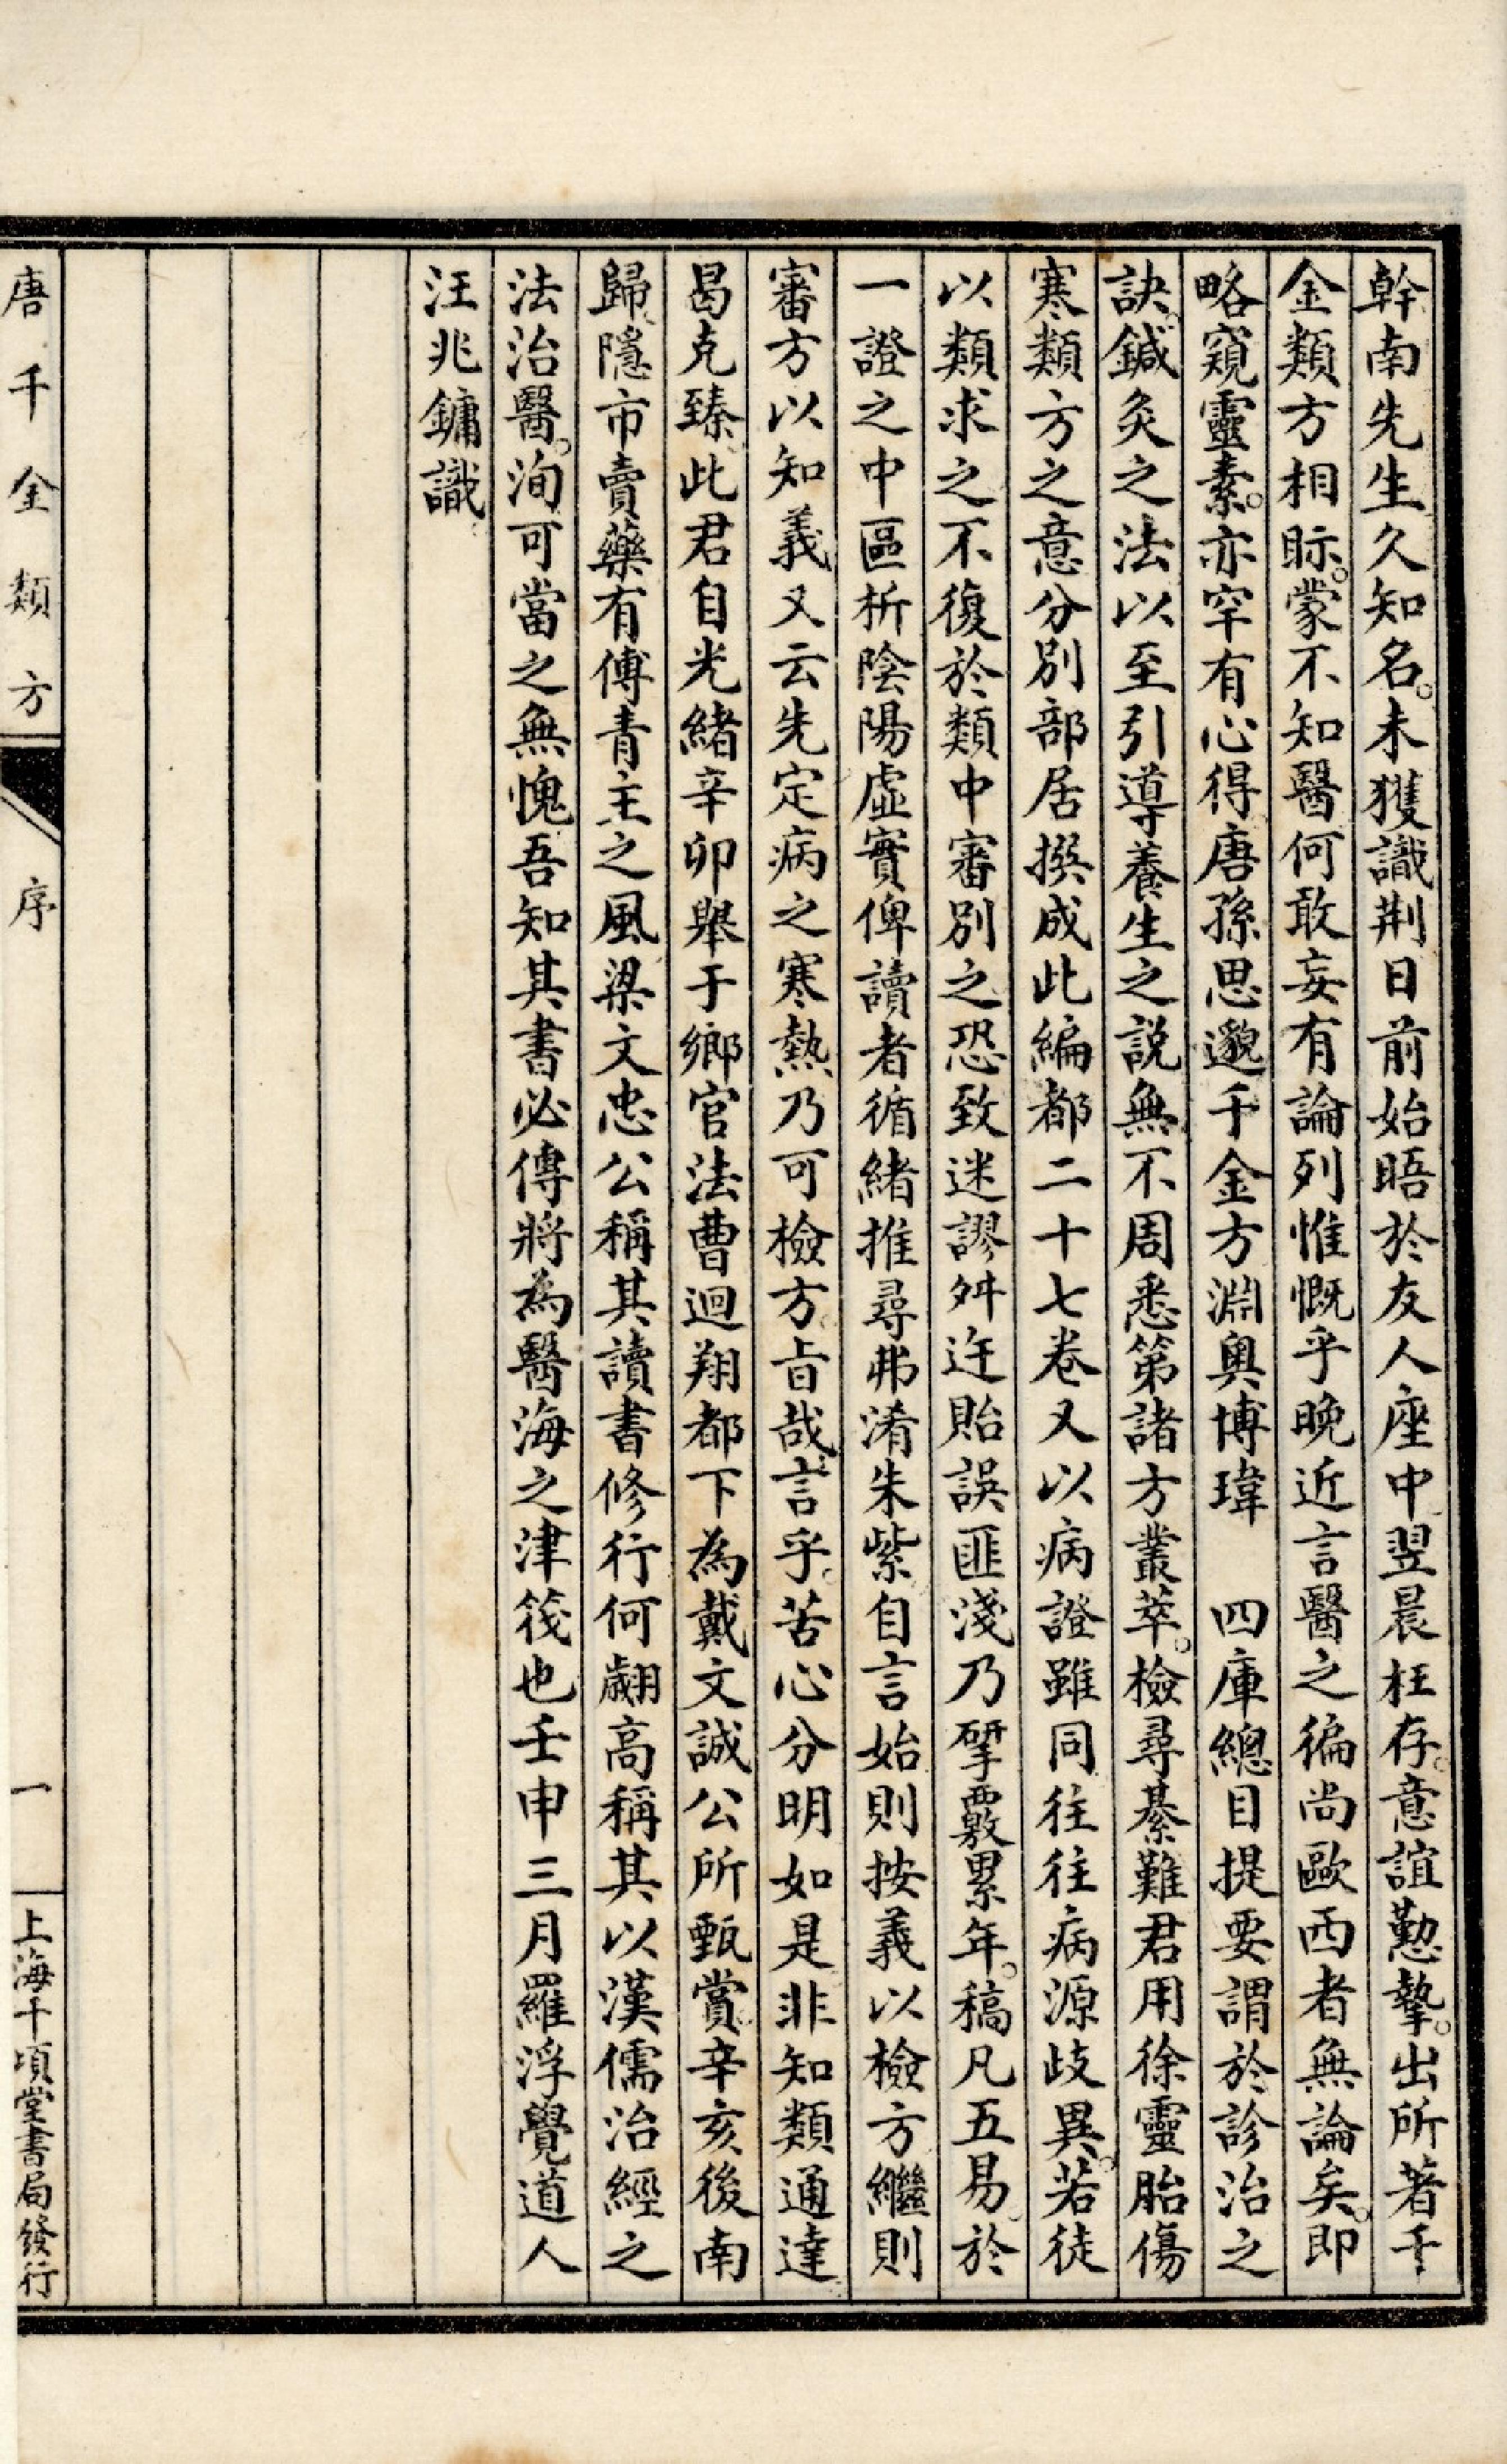 幹南先生久知名。未獲識荆日前始晤於友人座中翌晨枉存。意誼懃摯。出所著千
金類方相眎。蒙不知醫何敢妄有論列惟慨乎晚近言醫之徧尚歐西者無論矣。即
略窺靈素。亦罕有心得唐孫思邈千金方淵奧博瑋　四庫總目提要謂於診治之
訣。鍼灸之法以至引導養生之說無不周悉第諸方叢萃。檢尋綦難君用徐靈胎傷
寒類方之意分別部居撰成此編都二十七卷又以病證雖同往往病源歧異。若徒
以類求之不復於類中審別之恐致迷謬舛迕貽誤匪淺乃揅覈累年。稿凡五易。於
一證之中區析陰陽虛實俾讀者循緒推尋弗淆朱紫自言始則按義以檢方繼則
審方以知義又云先定病之寒熱乃可檢方。旨哉言乎。苦心分明如是非知類通達
曷克臻此君自光緒辛卯舉于鄉官法曹迴翔都下為戴文誠公所甄賞。辛亥後南
歸隱市賣藥有傅青主之風梁文忠公稱其讀書修行何翽高稱其以漢儒治經之
法治醫。洵可當之無愧吾知其書必傳將為醫海之津筏也壬申三月羅浮覺道人
汪兆鏞識
唐千金類方　序　一　上海千頃堂書局發行